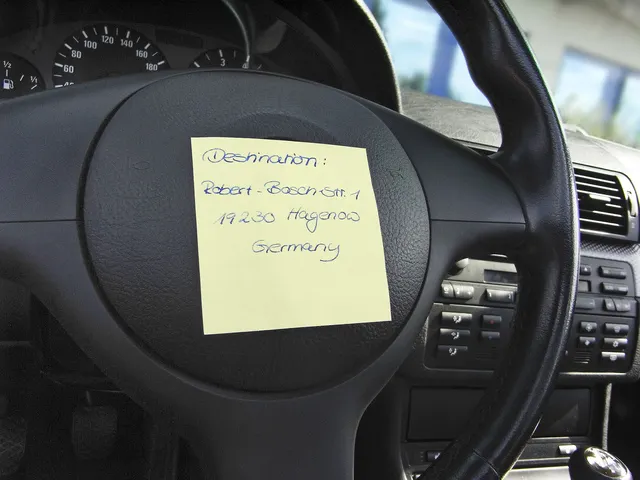 80 100 120 140 160 180
60
1/2 1/1
3
Destination:
Robert-Bosch-Str. 1
19230 Hagenow
Germany